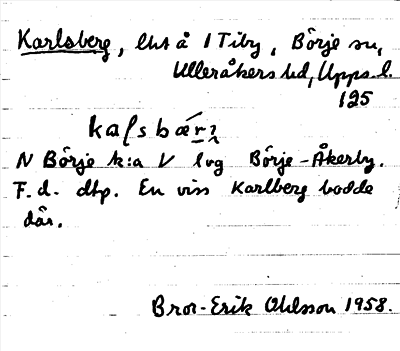 Karlsberg, lht å 1 Tiby, Börje sn,
Ulleråkers hd, Upps. l.
125
kaɭsbær̨ʒ
N Börje k:a V lvg Börje-Åkerby.
F.d. dtp. En viss Karlberg bodde
där.
Bror-Erik Ohlsson 1958.